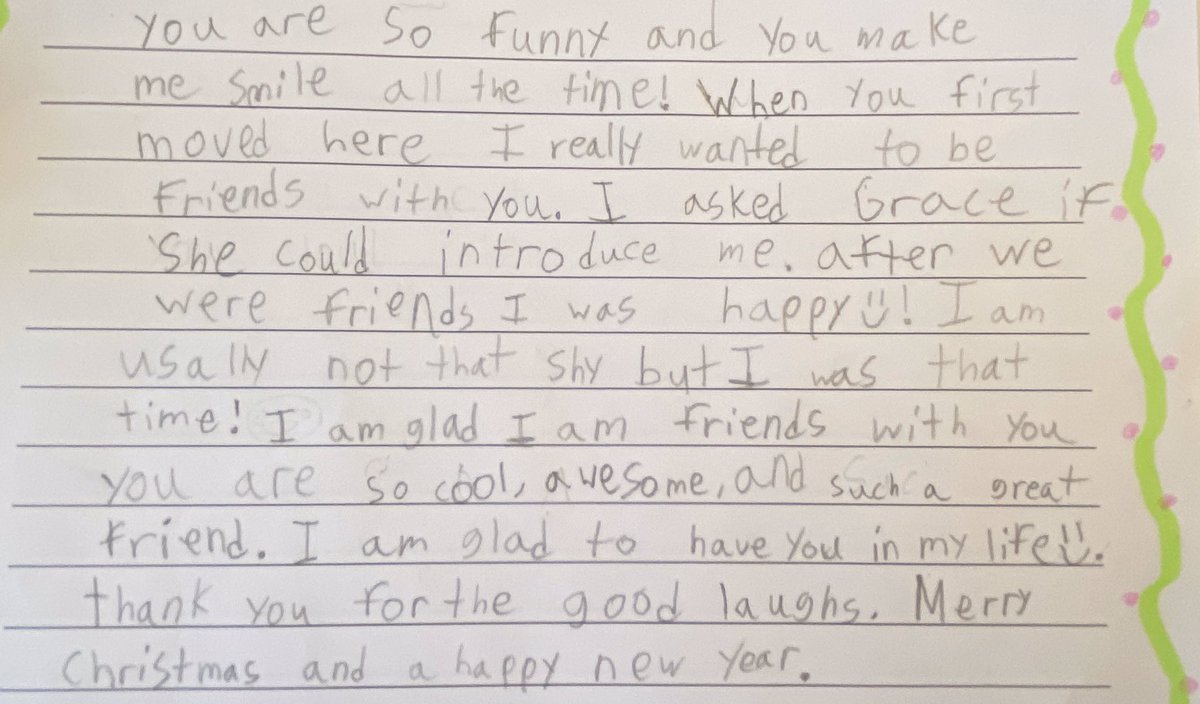 you are so funny and you make
me smile all the time! When you first
moved here I really wanted to be
friends with you. I asked Grace if
She could introduce me. after we
were friends I was happy☺! I am
usally not that shy but I was that
time! I am glad I am friends with you
you are so cool, awesome, and such a great
friend. I am glad to have you in my life☺.
thank you for the good laughs. Merry
Christmas and a happy new year.